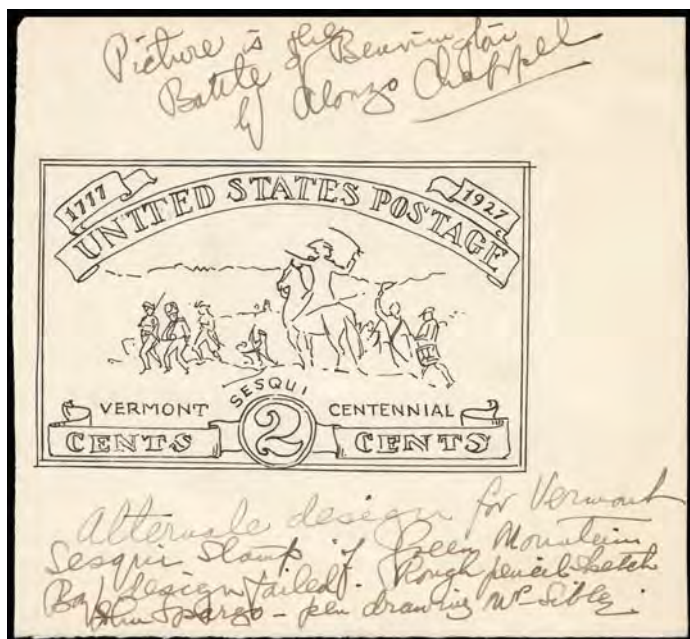 Picture is the
Battle of Bennington
by Alonzo Chappel
1777
1927
UNITED STATES POSTAGE
SESQUI
VERMONT
CENTENNIAL
CENTS 2 CENTS
Alternate design for Vermont
Sesqui Stamp if Green Mountain
Boy design failed. Rough pencil sketch
John Spargo - pen drawing Wm Sibley.